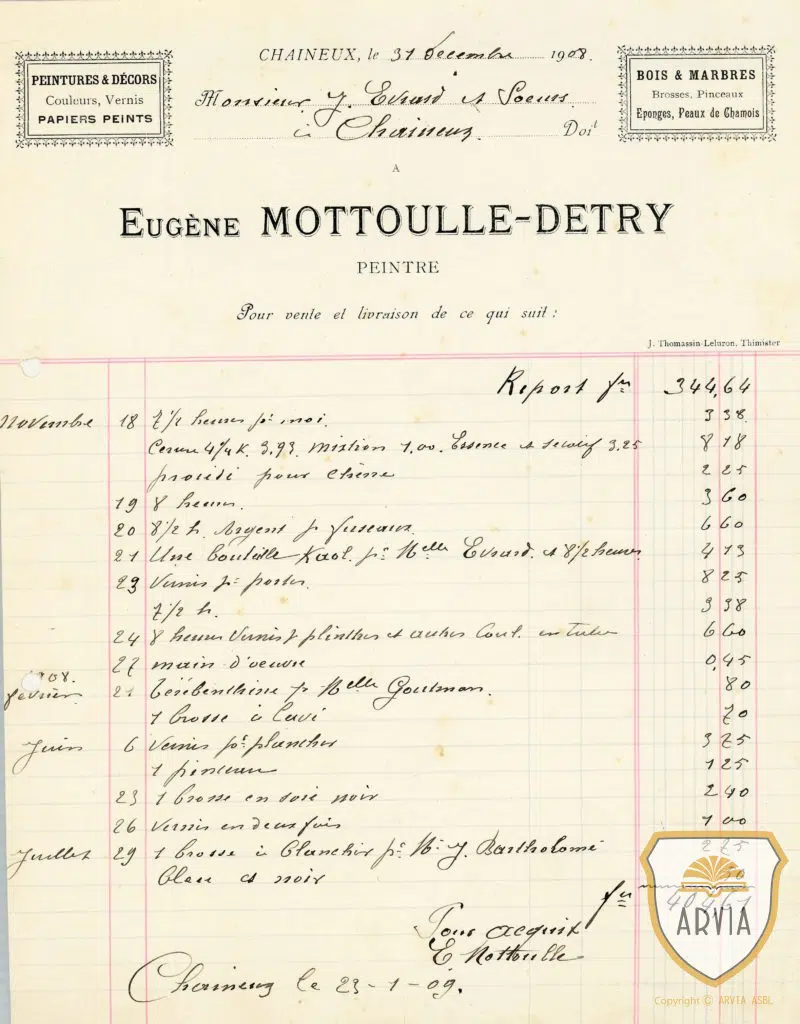 CHAINEUX, le 31 Décembre 1908.
PEINTURES & DÉCORS
Couleurs, Vernis
PAPIERS PEINTS
BOIS & MARBRES
Brosses, Pinceaux
Eponges, Peaux de Chamois
Monsieur J. Evrard et Soeurs
à Chaineux. Doit
A
EUGÈNE MOTTOULLE-DETRY
PEINTRE
Pour vente et livraison de ce qui suit :
J. Thomassin-Leluron, Thimister
Report fr 344,64
Novembre 18 7 1/2 heures pr moi. 3 38
Ceruse 4 1/4 K. 3,93. Mixtion 1,00. Essence et secatif 3,25 8 18
procédé pour chêne 2 25
19 8 heures. 3 60
20 8 1/2 h. Argent pr fuseaux 6 60
21 Une bouteille Kaol. pr Melle Evrard. et 8 1/2 heures 4 13
23 Vernis pr portes. 8 25
7 1/2 h. 3 38
24 8 heures Vernis pr plinthes et autres Coul. en tubes 6 60
27 main d'oeuvre 0,45
1908.
février 21 térébenthine pr Melle Goutman. 80
1 brosse à lavé 70
Juin 6 Vernis pr plancher 3 75
1 pinceau 1 25
23 1 brosse en soie noir 2 40
26 Vernis en deux fois 1 00
Juillet 29 1 brosse à blanchir pr Mr J. Bartholomé 2 75
Blanc et noir 50
fr 404,61
Pour acquit
E Mottoulle
Chaineux le 23-1-09.
ARVIA
Copyright © ARVIA ASBL